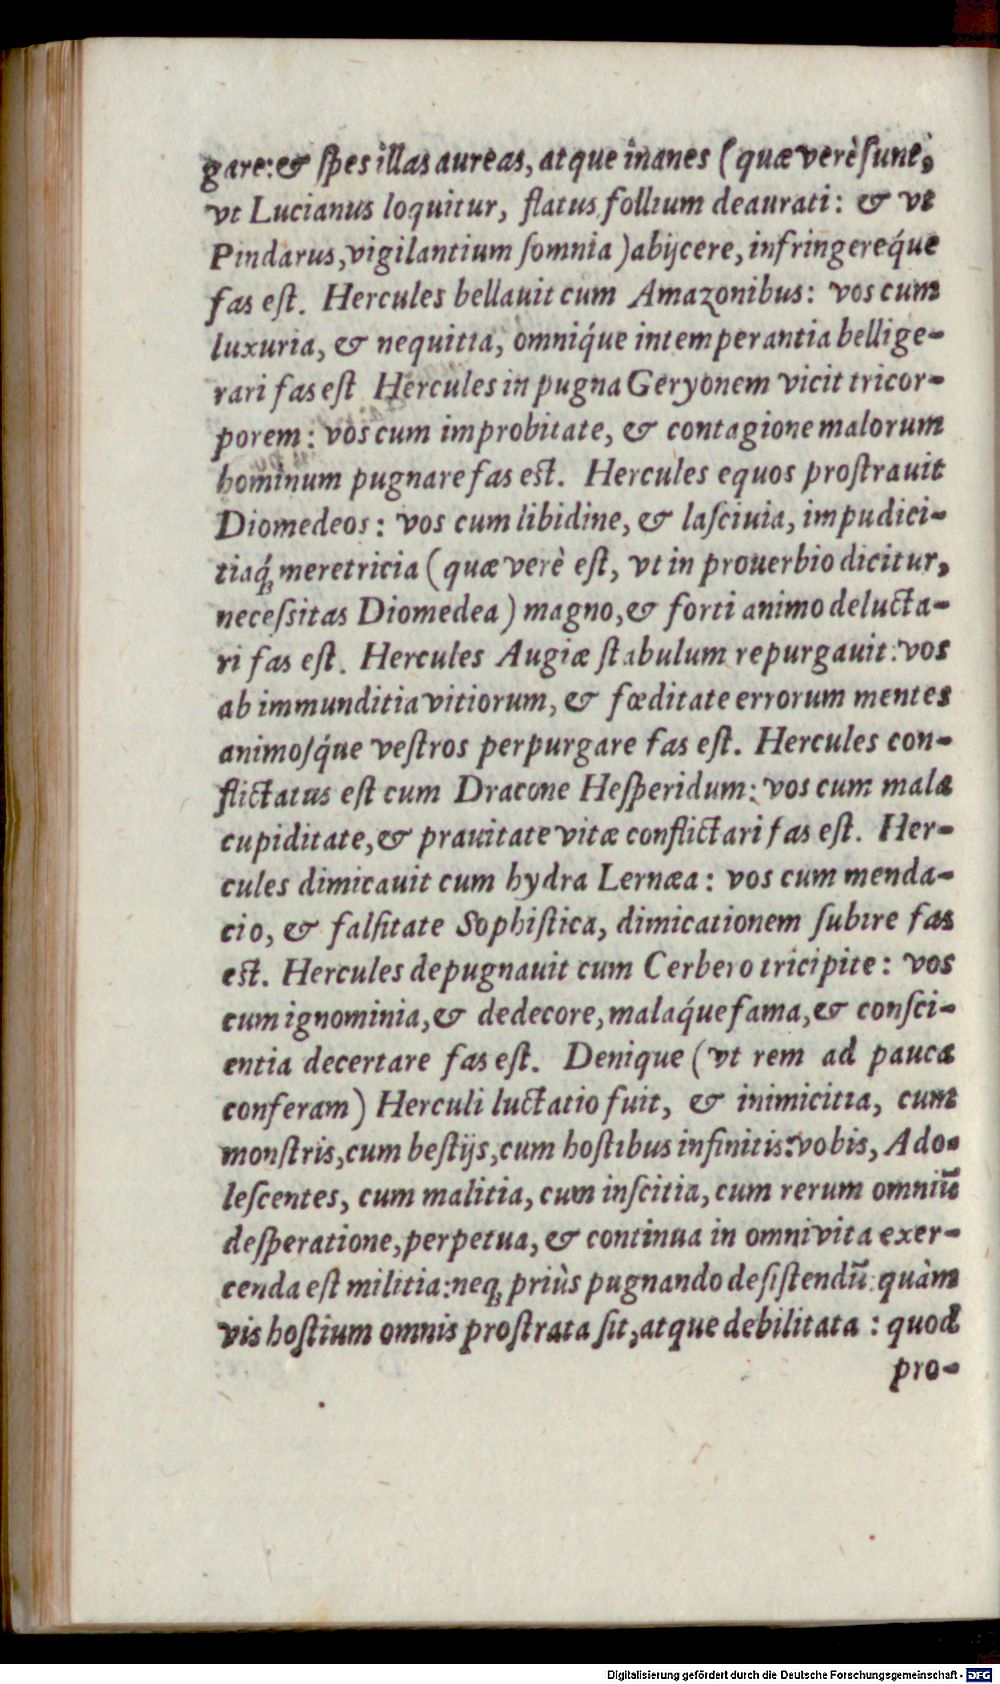 gare: & ſpes illas aureas, atque inanes (quæ verè ſunt,
vt Lucianus loquitur, flatus follium deaurati: & vt
Pindarus, vigilantium ſomnia) abijcere, infringereq́ue
fas eſt. Hercules bellauit cum Amazonibus: vos cum
luxuria, & nequitia, omniq́ue intemperantia bellige-
rari fas eſt Hercules in pugna Geryonem vicit tricor-
porem: vos cum improbitate, & contagione malorum
hominum pugnare fas eſt. Hercules equos proſtrauit
Diomedeos: vos cum libidine, & laſciuia, impudici-
tiaq́; meretricia (quæ verè eſt, vt in prouerbio dicitur,
neceſsitas Diomedea) magno, & forti animo delucta-
ri fas eſt. Hercules Augiæ ſtabulum repurgauit: vos
ab immunditia vitiorum, & fœditate errorum mentes
animoſq́ue veſtros perpurgare fas eſt. Hercules con-
flictatus eſt cum Dracone Heſperidum: vos cum mala
cupiditate, & prauitate vitæ conflictari fas eſt. Her-
cules dimicauit cum hydra Lernæa: vos cum menda-
cio, & falſitate Sophiſtica, dimicationem ſubire fas
eſt. Hercules depugnauit cum Cerbero tricipite: vos
cum ignominia, & dedecore, malaq́ue fama, & conſci-
entia decertare fas eſt. Denique (vt rem ad pauca
conferam) Herculi luctatio fuit, & inimicitia, cum
monſtris, cum beſtijs, cum hoſtibus infinitis: vobis, Ado-
leſcentes, cum malitia, cum inſcitia, cum rerum omniũ
deſperatione, perpetua, & continua in omni vita exer-
cenda eſt militia: neq; priùs pugnando deſiſtendũ: quàm
vis hoſtium omnis proſtrata ſit, atque debilitata: quod
pro-
Digitalisierung gefördert durch die Deutsche Forschungsgemeinschaft - DFG